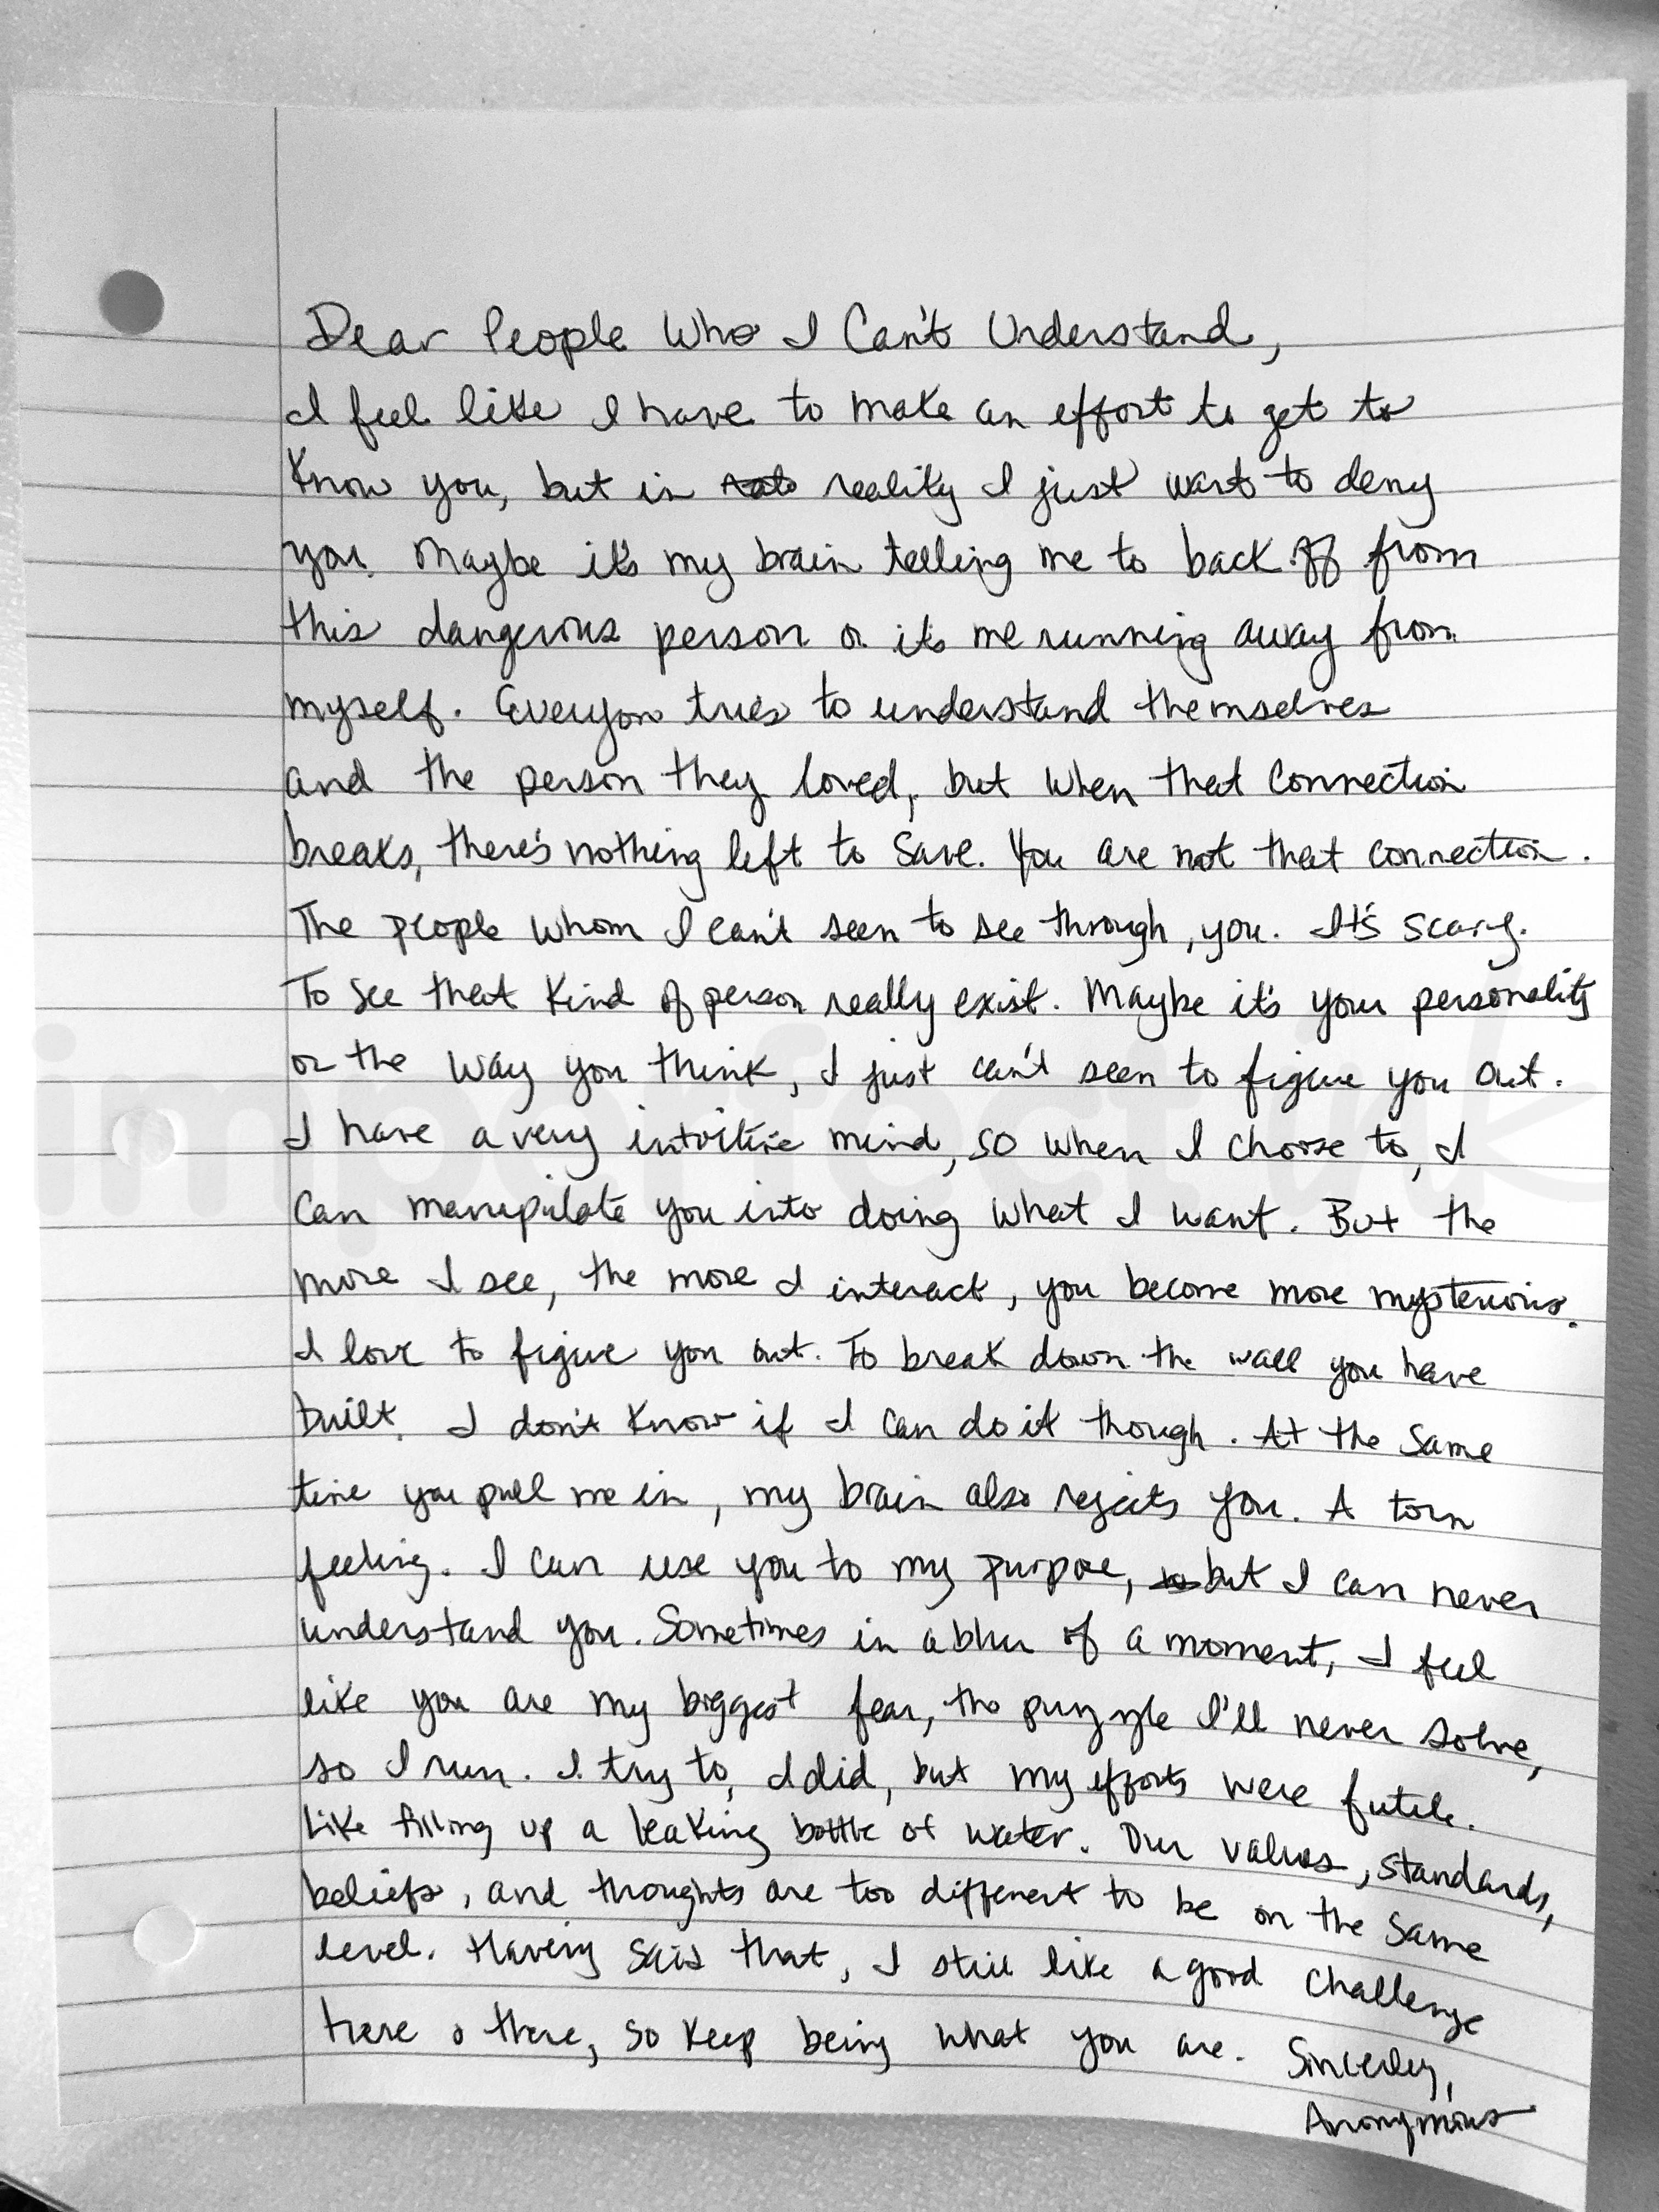 Dear People Who I Can't Understand,
I feel like I have to make an effort to get to
know you, but in reality I just want to deny
you. Maybe it's my brain telling me to back off from
this dangerous person or it's me running away from
myself. Everyone tries to understand themselves
and the person they loved, but when that connection
breaks, there's nothing left to save. You are not that connection.
The people whom I can't seen to see through, you. It's scary.
To see that kind of person really exist. Maybe it's your personality
or the way you think, I just can't seen to figure you out.
I have a very intuitive mind, so when I choose to, I
can manipulate you into doing what I want. But the
more I see, the more I interact, you become more mysterious.
I love to figure you out. To break down the wall you have
built. I don't know if I can do it though. At the same
time you pull me in, my brain also rejects you. A torn
feeling. I can use you to my purpose, but I can never
understand you. Sometimes in a blur of a moment, I feel
like you are my biggest fear, the puzzle I'll never solve,
so I run. I try to, I did, but my efforts were futile.
Like filling up a leaking bottle of water. Our values, standards,
beliefs, and thoughts are too different to be on the same
level. Having said that, I still like a good challenge
here & there, so keep being what you are. Sincerley,
Anonymous
imperfect ink